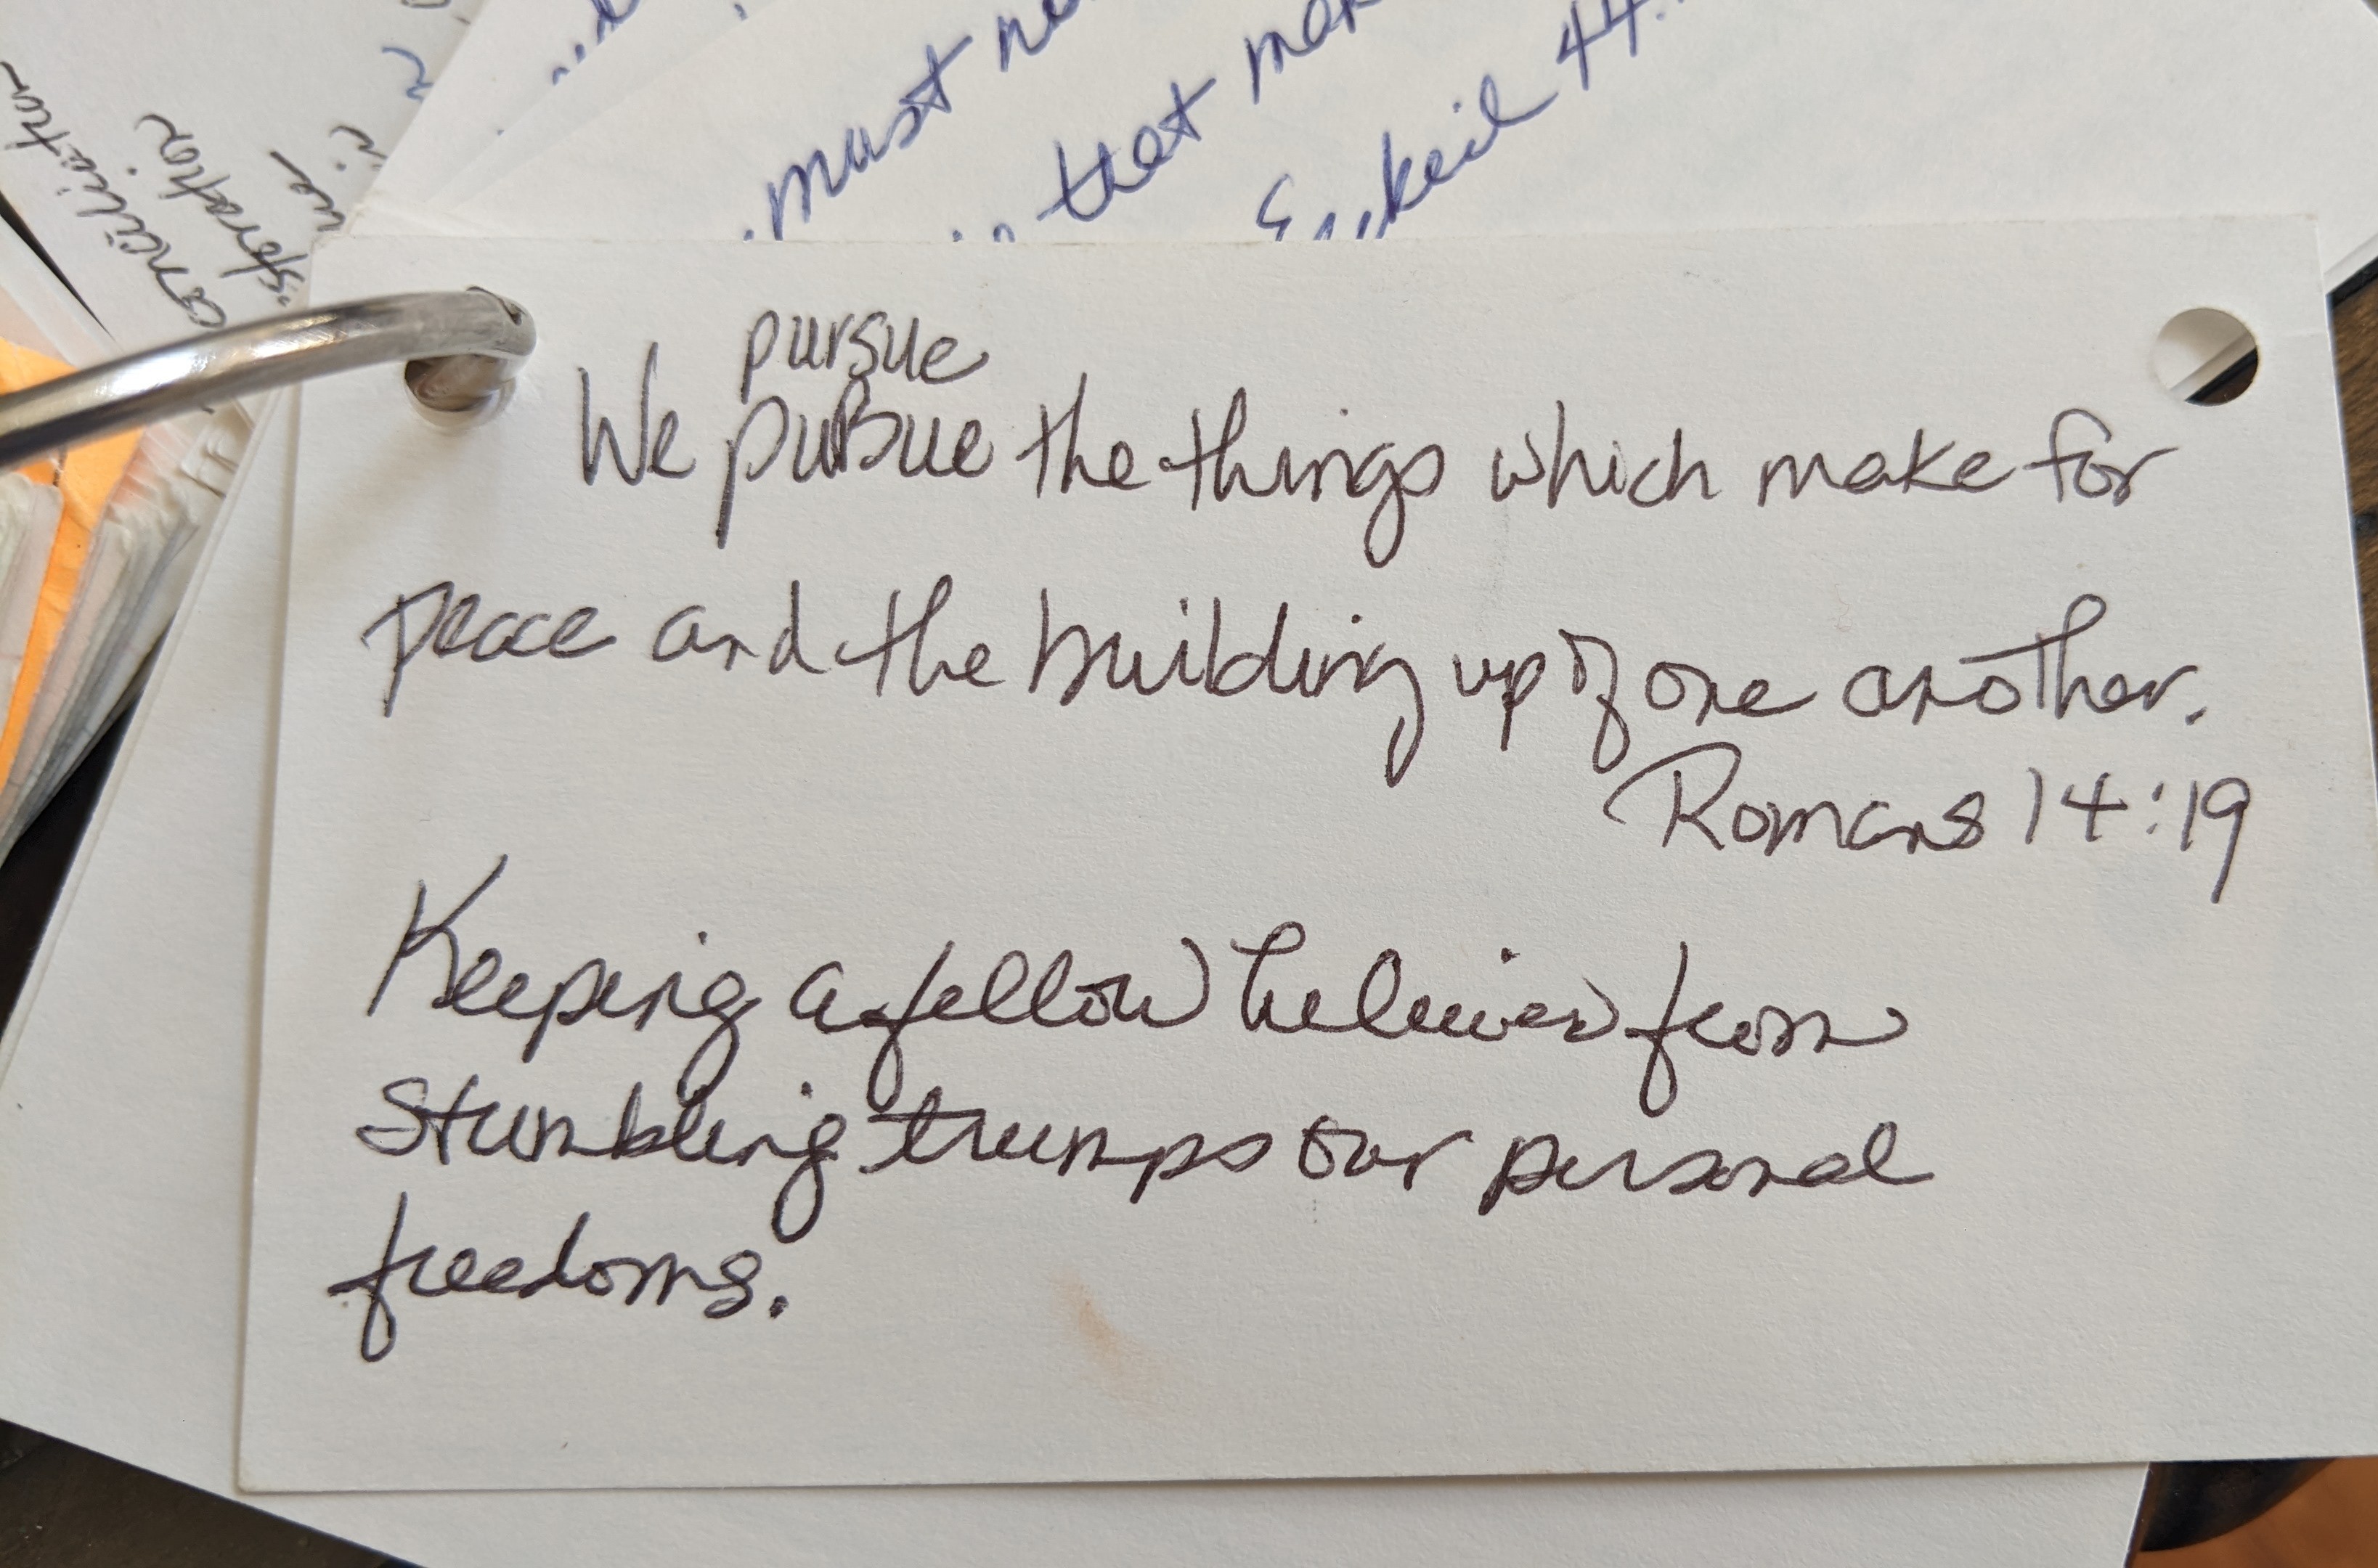 must
that
44
pursue
We pursue the things which make for
peace and the building up of one another.
Romans 14:19
Keeping a fellow believer from
stumbling trumps our personal
freedoms.